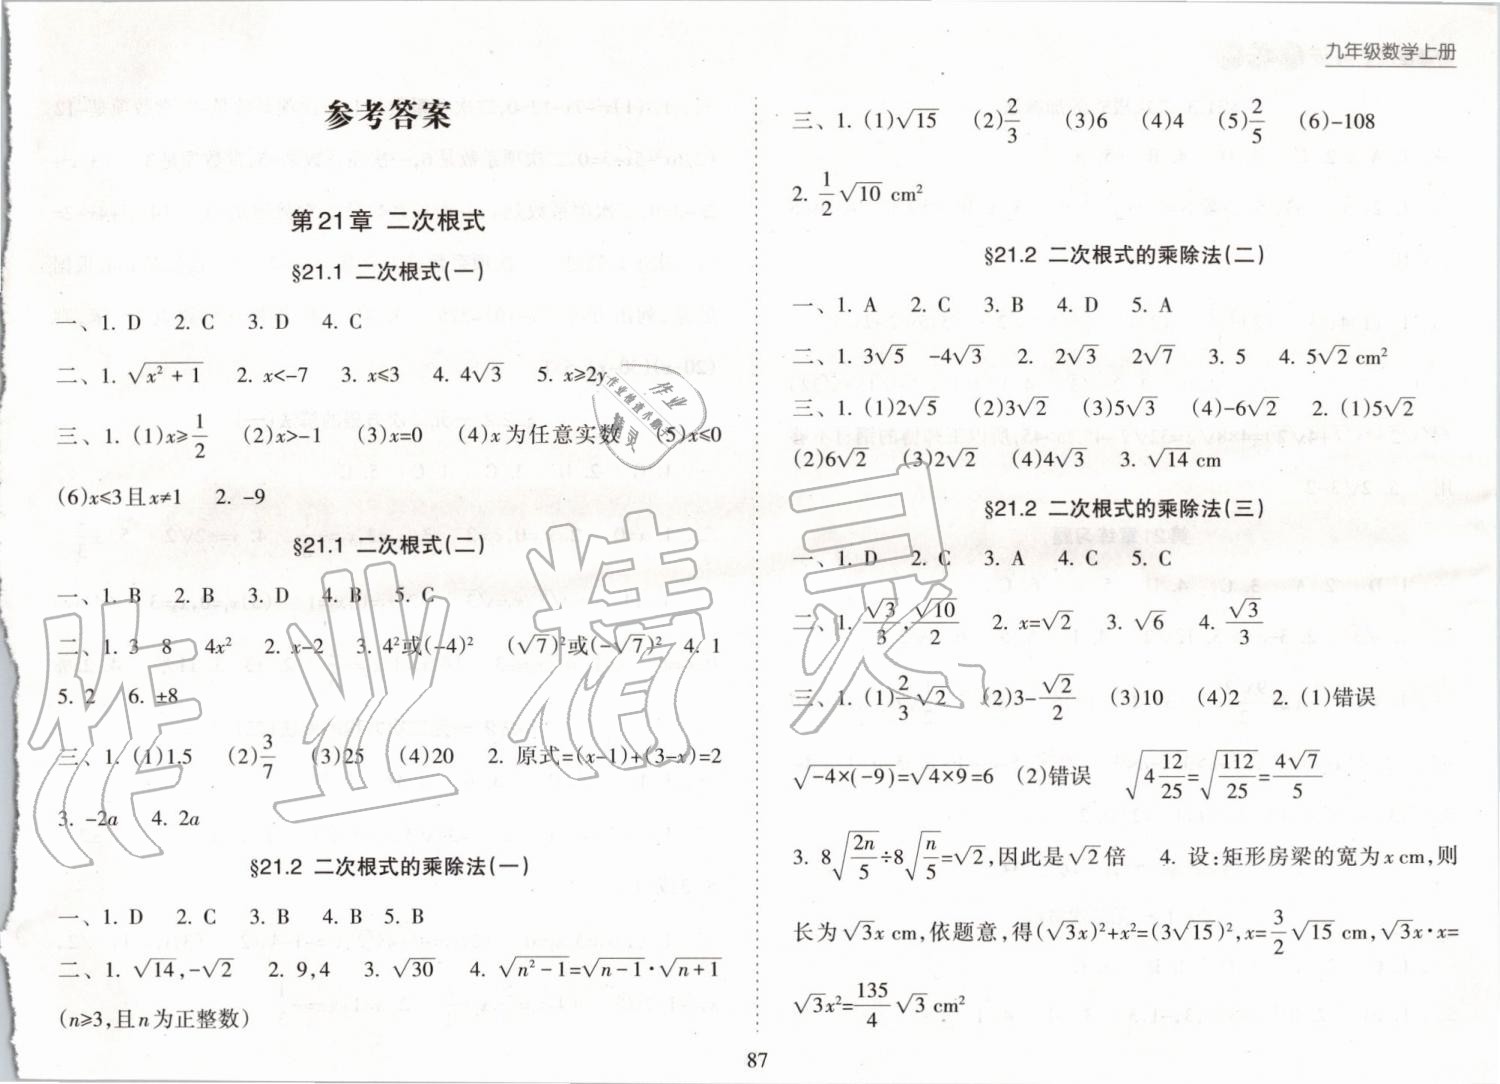 九年级数学上册
参考答案
第21章 二次根式
§21.1 二次根式(一)
一、1. D 2. C 3. D 4. C
二、1. √(x²+1) 2. x<-7 3. x≤3 4. 4√3 5. x≥2y
三、1. (1)x≥1/2 (2)x>-1 (3)x=0 (4)x为任意实数 (5)x≤0
(6)x≤3且x≠1 2. -9
§21.1 二次根式(二)
一、1. B 2. B 3. D 4. B 5. C
二、1. 3 8 4x² 2. x-2 3. 4²或(-4)² (√7)²或(-√7)² 4. 1
5. 2 6. ±8
三、1. (1)1.5 (2)3/7 (3)25 (4)20 2. 原式=(x-1)+(3-x)=2
3. -2a 4. 2a
§21.2 二次根式的乘除法(一)
一、1. D 2. C 3. B 4. B 5. B
二、1. √14,-√2 2. 9,4 3. √30 4. √(n²-1)=√(n-1)·√(n+1)
(n≥3,且n为正整数)
三、1. (1)√15 (2)2/3 (3)6 (4)4 (5)2/5 (6)-108
2. 1/2√10 cm²
§21.2 二次根式的乘除法(二)
一、1. A 2. C 3. B 4. D 5. A
二、1. 3√5 -4√3 2. 2√3 2√7 3. 5 4. 5√2 cm²
三、1. (1)2√5 (2)3√2 (3)5√3 (4)-6√2 2. (1)5√2
(2)6√2 (3)2√2 (4)4√3 3. √14 cm
§21.2 二次根式的乘除法(三)
一、1. D 2. C 3. A 4. C 5. C
二、1. √3/3,√10/2 2. x=√2 3. √6 4. √3/3
三、1. (1)2/3√2 (2)3-√2/2 (3)10 (4)2 2. (1)错误
√(-4×(-9))=√(4×9)=6 (2)错误 √(4 12/25)=√(112/25)=4√7/5
3. 8√(2n/5)÷8√(n/5)=√2,因此是√2倍 4. 设:矩形房梁的宽为x cm,则
长为√3x cm,依题意,得(√3x)²+x²=(3√15)²,x=3/2√15 cm,√3x·x=
√3x²=135/4√3 cm²
87
作业精灵